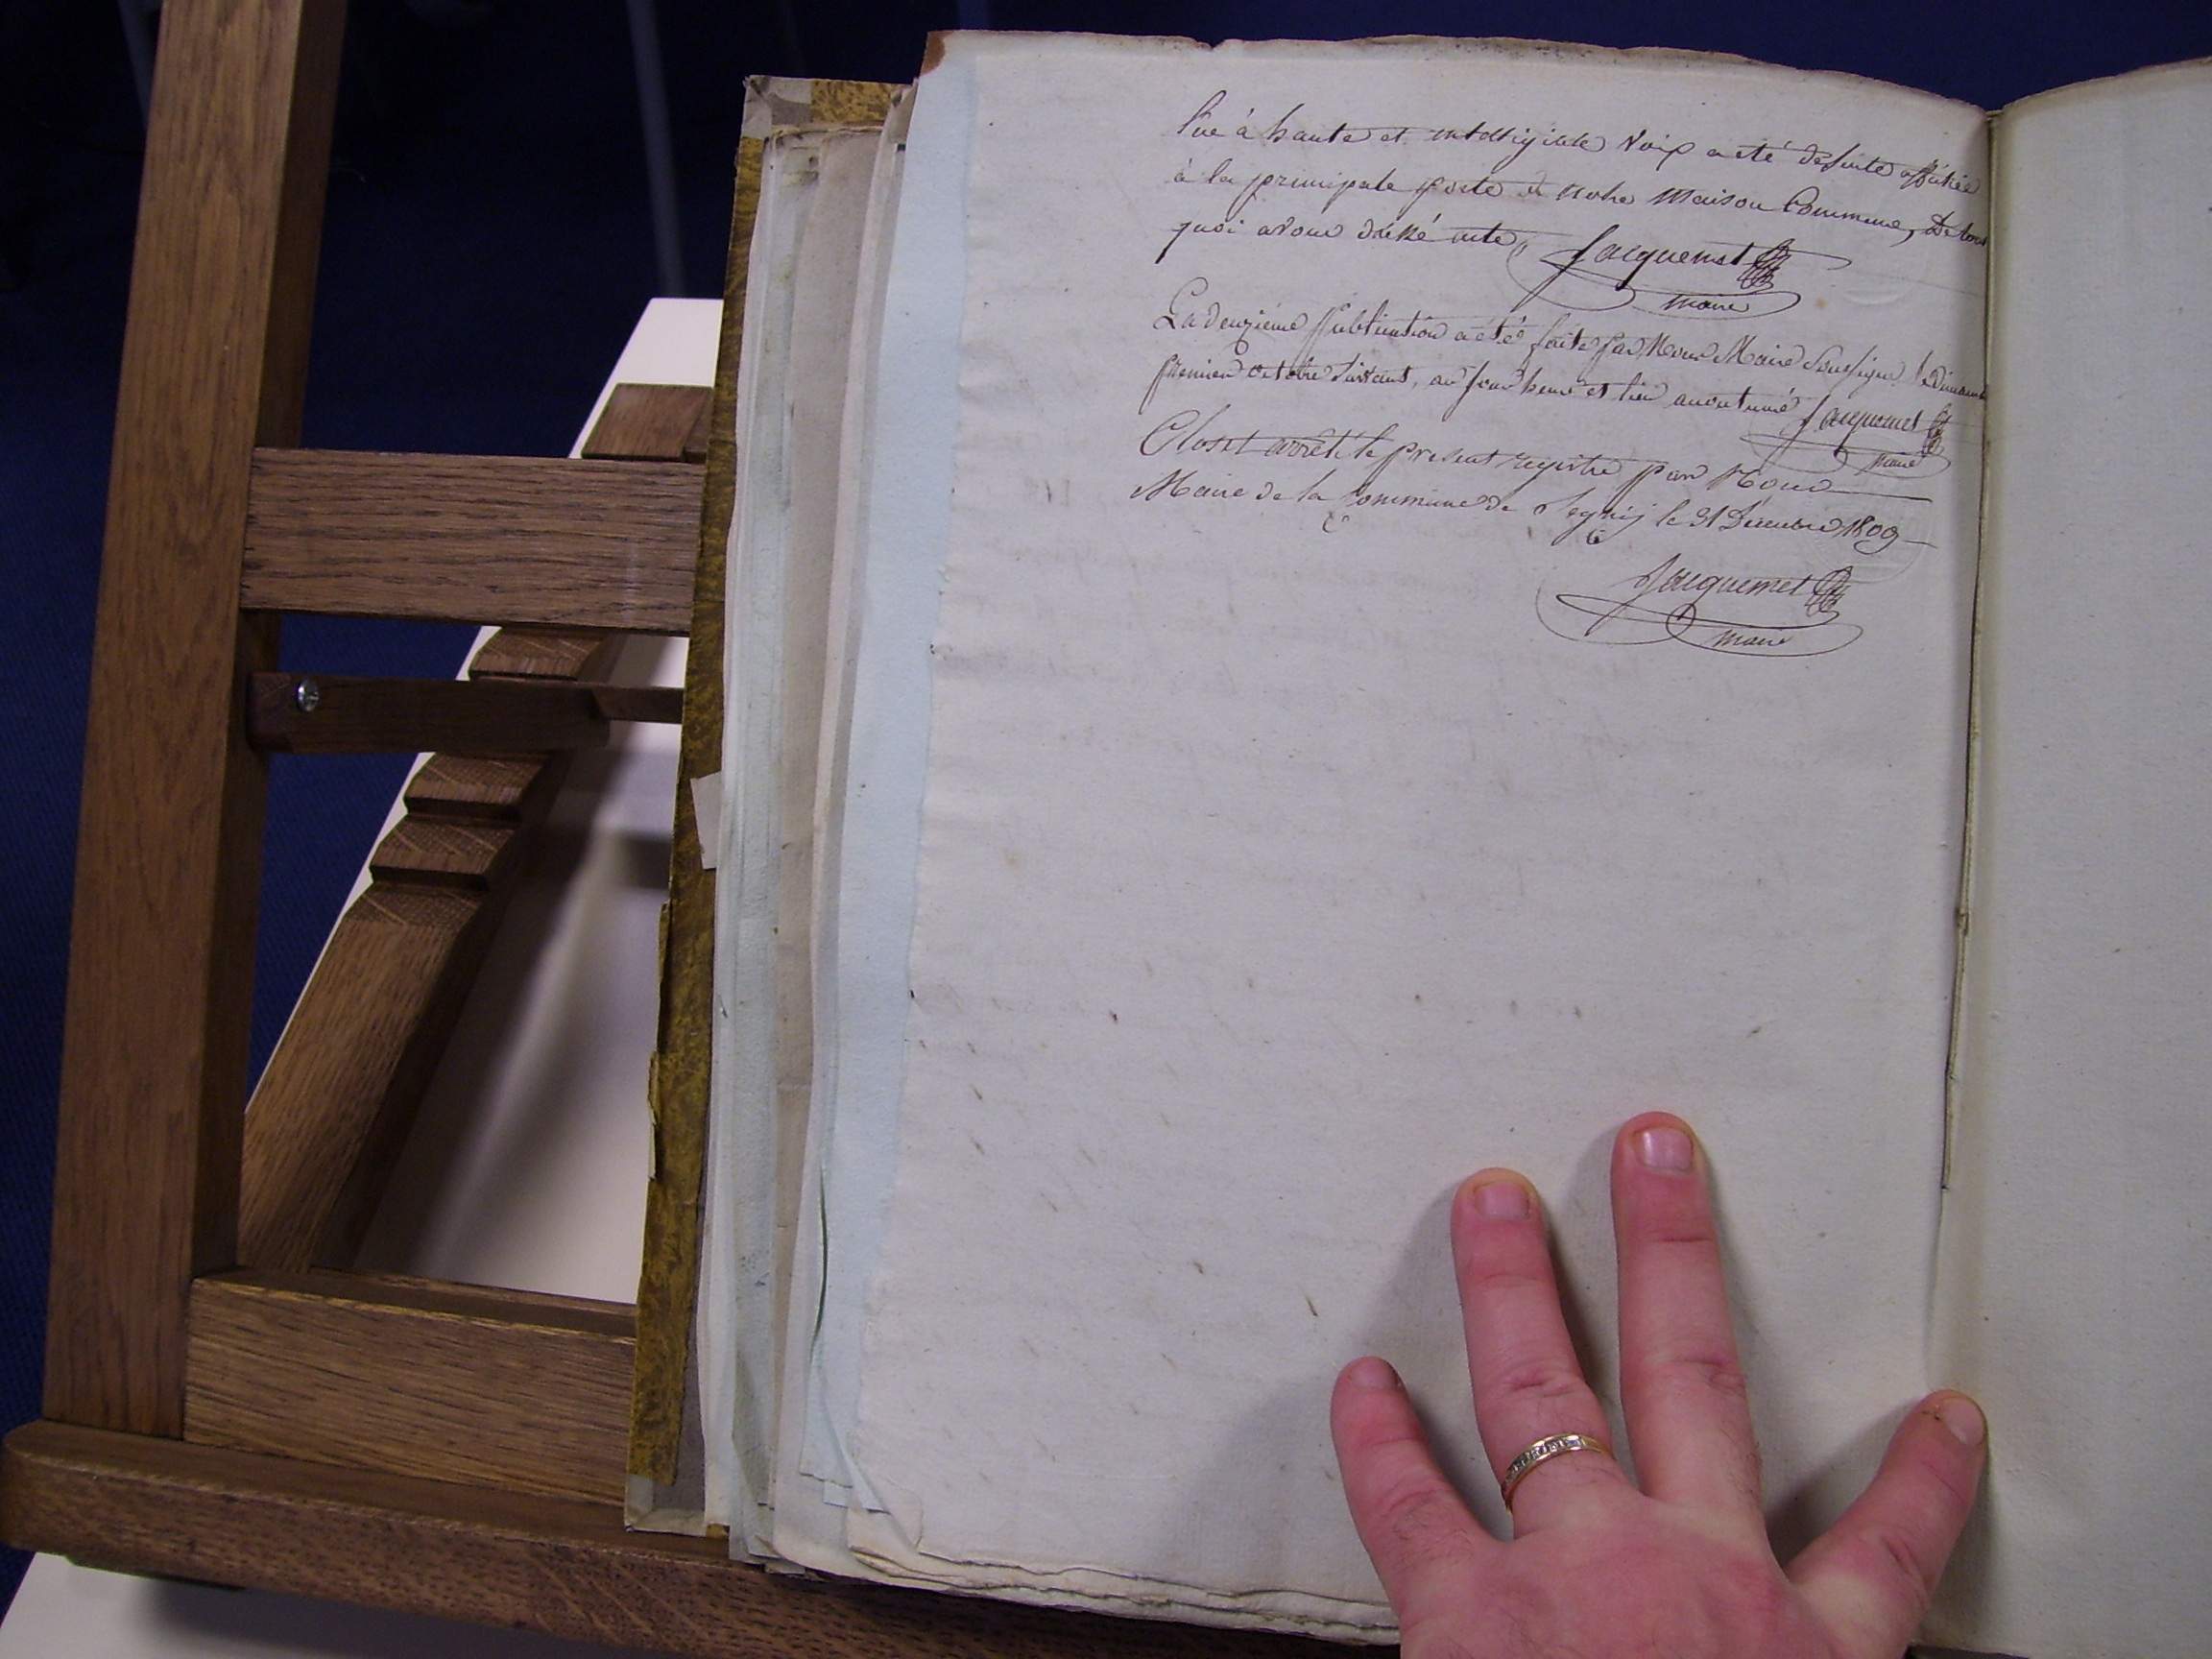 lue à haute et intelligible voix a été desuite affichée
à la principale porte de notre Maison Commune, De tout
quoi avons dréssé acte, Jacquemet
maire
La deuxième Publication a été faite par Nous Maire Soussigné le Dimanche
premier octobre Suivant, au jour heure et lieu accoutumé Jacquemet
maire
Clos et arrêté le present registre par Nous
Maire de la Commune de Segny le 31 Décembre 1809
Jacquemet
maire